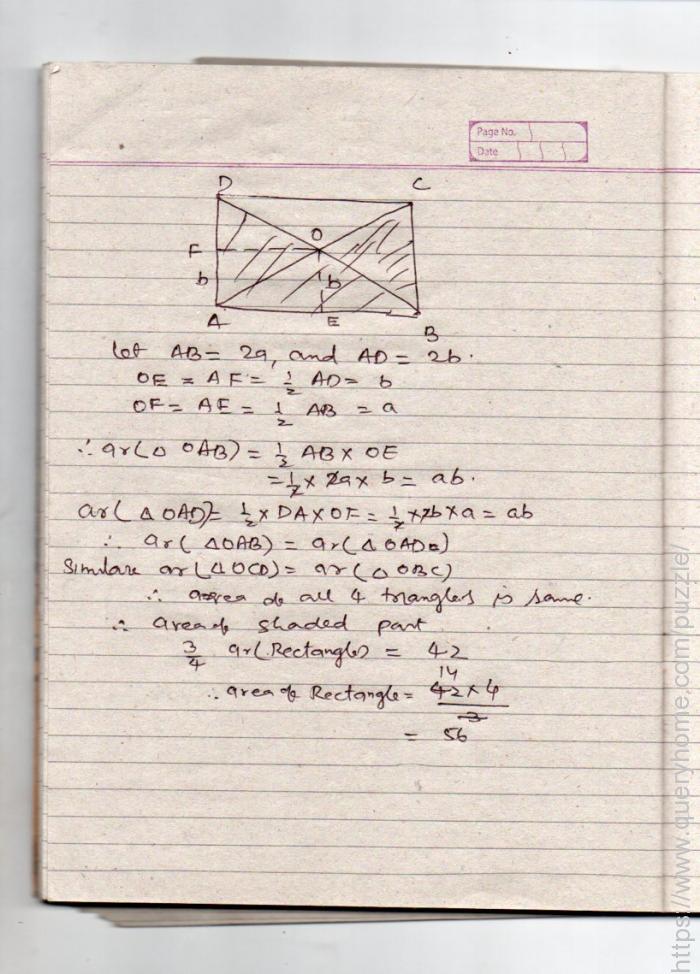 Page No.
Date
D C
O
F
b b
A E B
let AB = 2a, and AD = 2b.
OE = AF = 1/2 AD = b
OF = AE = 1/2 AB = a
∴ ar(△ OAB) = 1/2 AB × OE
= 1/2 × 2a × b = ab.
ar(△ OAD) = 1/2 × DA × OF = 1/2 × 2b × a = ab
∴ ar(△OAB) = ar(△OAD)
ar(△OCD) = ar(△OBC)
∴ area of all 4 triangles is same.
∴ area of shaded part
3/4 ar(Rectangle) = 42
14
∴ area of Rectangle = 42 × 4
3
= 56
https://www.queryhome.com/puzzle/